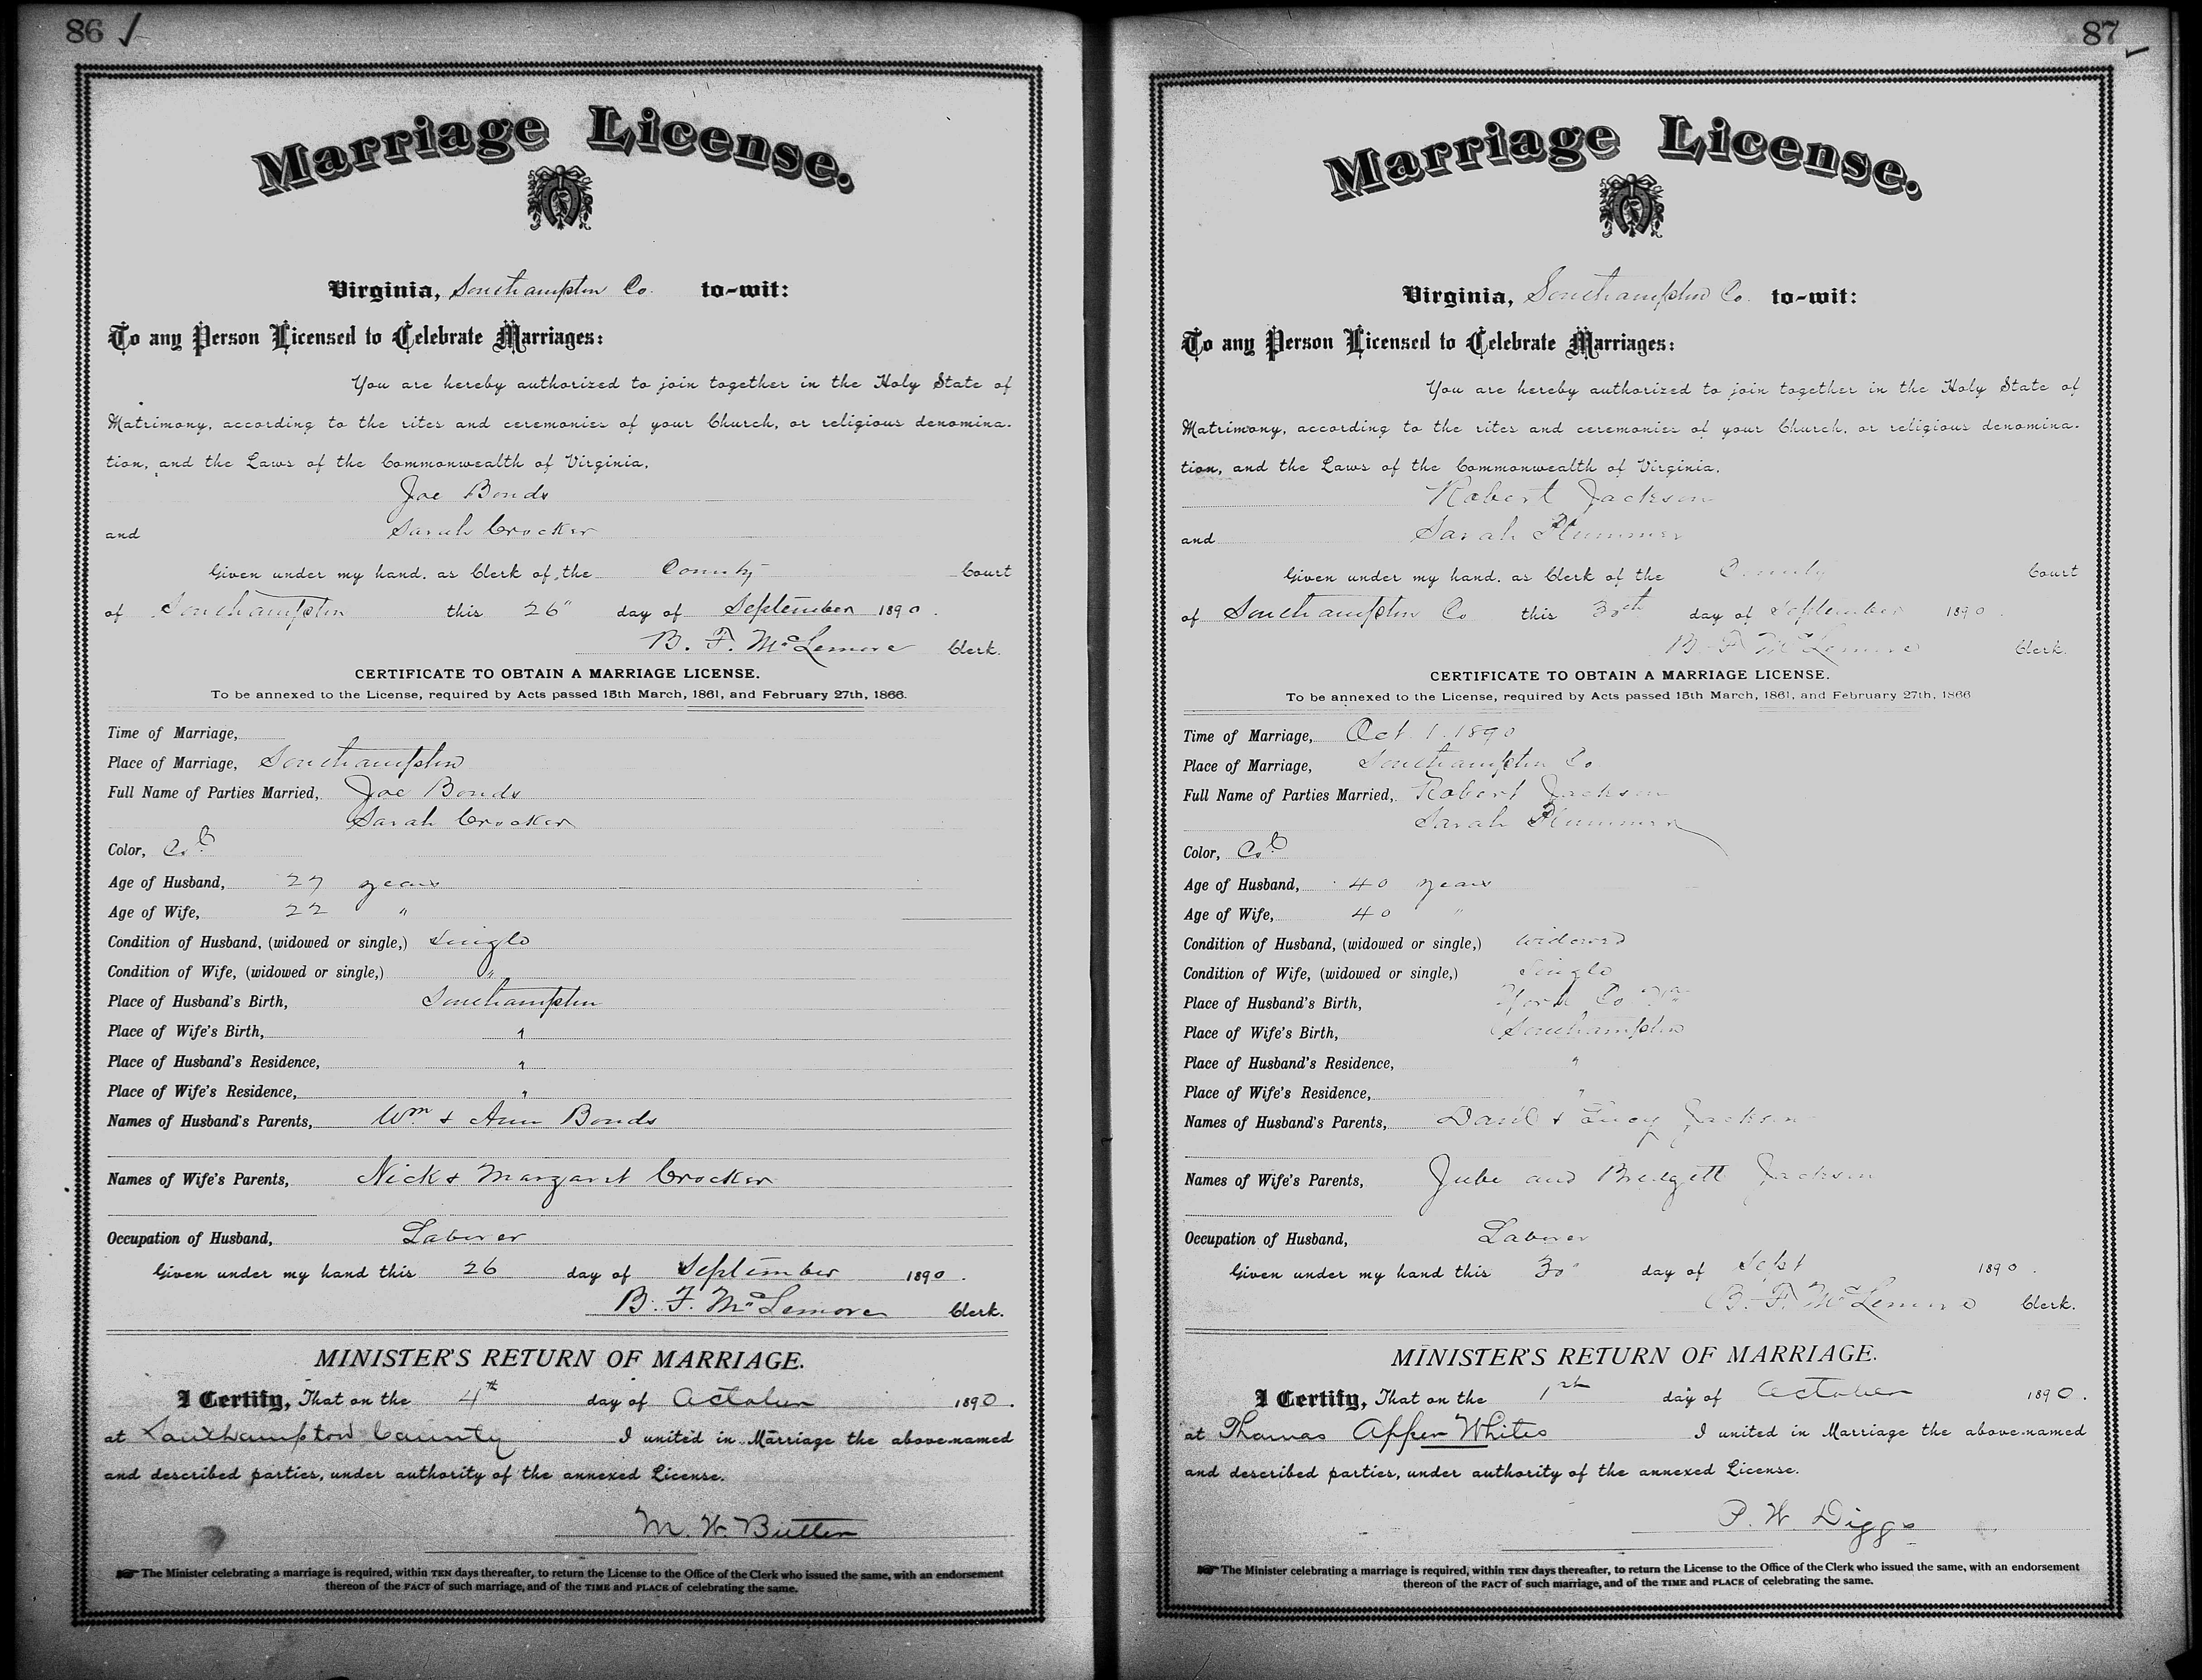 86 ✓
Marriage License.
Virginia, Southampton Co. to-wit:
To any Person Licensed to Celebrate Marriages:
You are hereby authorized to join together in the Holy State of
Matrimony, according to the rites and ceremonies of your Church, or religious denomina-
tion, and the Laws of the Commonwealth of Virginia,
Joe Bonds
and Sarah Crocker
Given under my hand, as Clerk of the County Court
of Southampton this 26" day of September 1890.
B. F. McLemore Clerk.
CERTIFICATE TO OBTAIN A MARRIAGE LICENSE.
To be annexed to the License, required by Acts passed 15th March, 1861, and February 27th, 1866.
Time of Marriage,
Place of Marriage, Southampton
Full Name of Parties Married, Joe Bonds
Sarah Crocker
Color, Cold
Age of Husband, 27 years
Age of Wife, 22 "
Condition of Husband, (widowed or single,) Single
Condition of Wife, (widowed or single,) "
Place of Husband's Birth, Southampton
Place of Wife's Birth, "
Place of Husband's Residence, "
Place of Wife's Residence, "
Names of Husband's Parents, Wm & Ann Bonds
Names of Wife's Parents, Nick & Margaret Crocker
Occupation of Husband, Laborer
Given under my hand this 26 day of September 1890.
B. F. McLemore Clerk.
MINISTER'S RETURN OF MARRIAGE.
I Certify, That on the 4th day of October 1890.
at Southampton County I united in Marriage the above-named
and described parties, under authority of the annexed License.
M. W. Butler
☛ The Minister celebrating a marriage is required, within TEN days thereafter, to return the License to the Office of the Clerk who issued the same, with an endorsement
thereon of the FACT of such marriage, and of the TIME and PLACE of celebrating the same.
87 ✓
Marriage License.
Virginia, Southampton Co. to-wit:
To any Person Licensed to Celebrate Marriages:
You are hereby authorized to join together in the Holy State of
Matrimony, according to the rites and ceremonies of your Church, or religious denomina-
tion, and the Laws of the Commonwealth of Virginia,
Robert Jackson
and Sarah Plummer
Given under my hand, as Clerk of the County Court
of Southampton Co this 30th day of September 1890.
B. F. McLemore Clerk.
CERTIFICATE TO OBTAIN A MARRIAGE LICENSE.
To be annexed to the License, required by Acts passed 15th March, 1861, and February 27th, 1866
Time of Marriage, Oct 1. 1890
Place of Marriage, Southampton Co
Full Name of Parties Married, Robert Jackson
Sarah Plummer
Color, Cold
Age of Husband, 40 years
Age of Wife, 40 "
Condition of Husband, (widowed or single,) Widowed
Condition of Wife, (widowed or single,) Single
Place of Husband's Birth, York Co Va
Place of Wife's Birth, Southampton
Place of Husband's Residence, "
Place of Wife's Residence, "
Names of Husband's Parents, & Lucy Jackson
Names of Wife's Parents, Jube and Bridgett Jackson
Occupation of Husband, Laborer
Given under my hand this 30" day of Sept 1890.
B. F. McLemore Clerk.
MINISTER'S RETURN OF MARRIAGE.
I Certify, That on the 1st day of October 1890.
at Thomas Appen Whites I united in Marriage the above-named
and described parties, under authority of the annexed License.
P. W. Diggs
☛ The Minister celebrating a marriage is required, within TEN days thereafter, to return the License to the Office of the Clerk who issued the same, with an endorsement
thereon of the FACT of such marriage, and of the TIME and PLACE of celebrating the same.